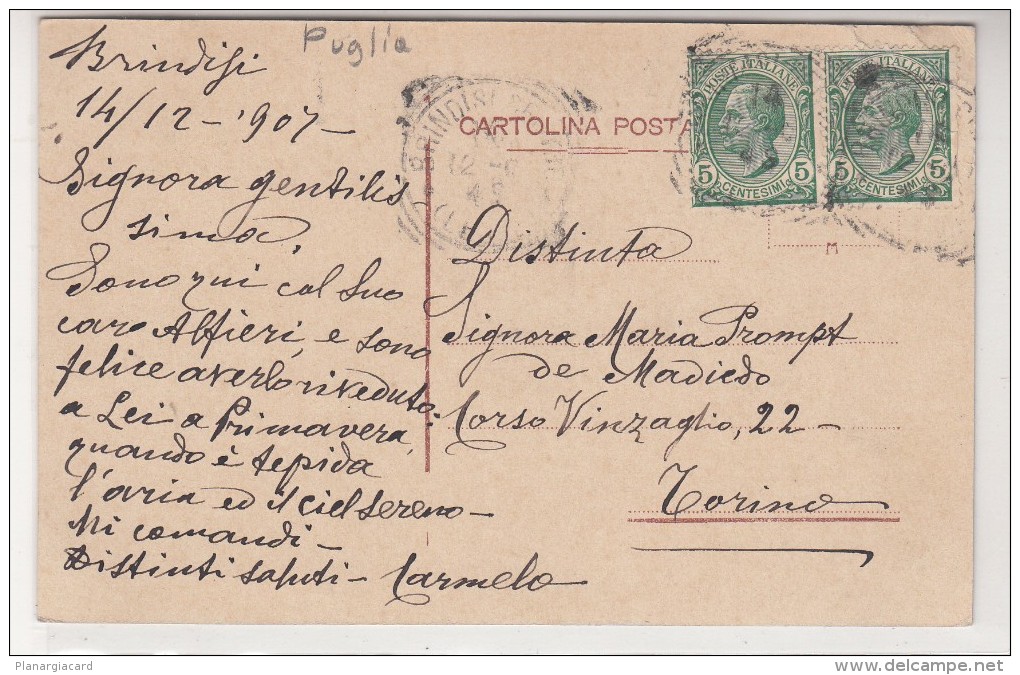 Puglia
Brindisi
14/12-'907-
Signora gentilis
sima,
Sono qui col Suo
caro Alfieri, e sono
felice averlo riveduto.
a Lei a Primavera,
quando è tepida
l'aria ed il ciel sereno-
Mi comandi-
Distinti saluti- Carmelo
BRINDISI
12
CARTOLINA POSTA
POSTE ITALIANE
5 CENTESIMI 5
POSTE ITALIANE
5 CENTESIMI 5
M
Distinta
Signora Maria Prompt
de Madiedo
Corso Vinzaglio, 22-
Torino
Planargiacard
www.delcampe.net